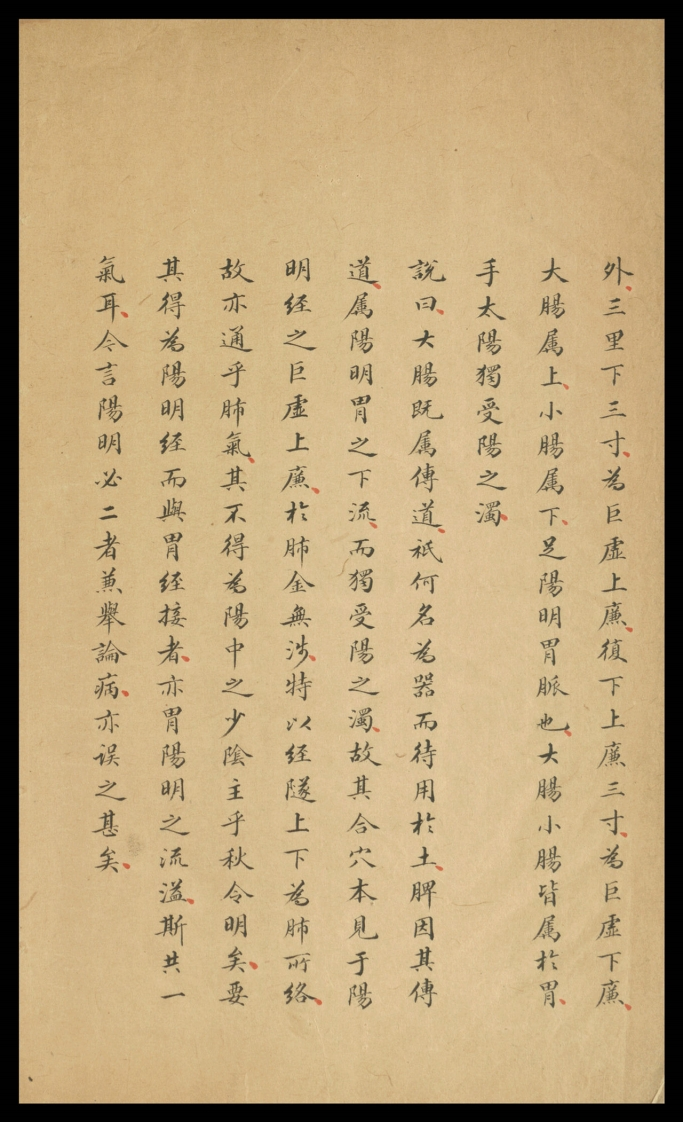 外、三里下三寸、為巨虛上廉、復下上廉三寸、為巨虛下廉、
大腸属上、小腸属下、足陽明胃脈也、大腸小腸皆属於胃、
手太陽獨受陽之濁、
說曰、大腸既属傳道、祇何名為器而待用於土、脾因其傳
道、属陽明胃之下流、而獨受陽之濁、故其合穴本見于陽
明経之巨虛上廉、於肺金無涉、特以経隧上下為肺所絡、
故亦通乎肺氣、其不得為陽中之少陰主乎秋令明矣、要
其得為陽明経而與胃経接者、亦胃陽明之流溢、斯共一
氣耳、今言陽明必二者兼舉論病、亦误之甚矣、